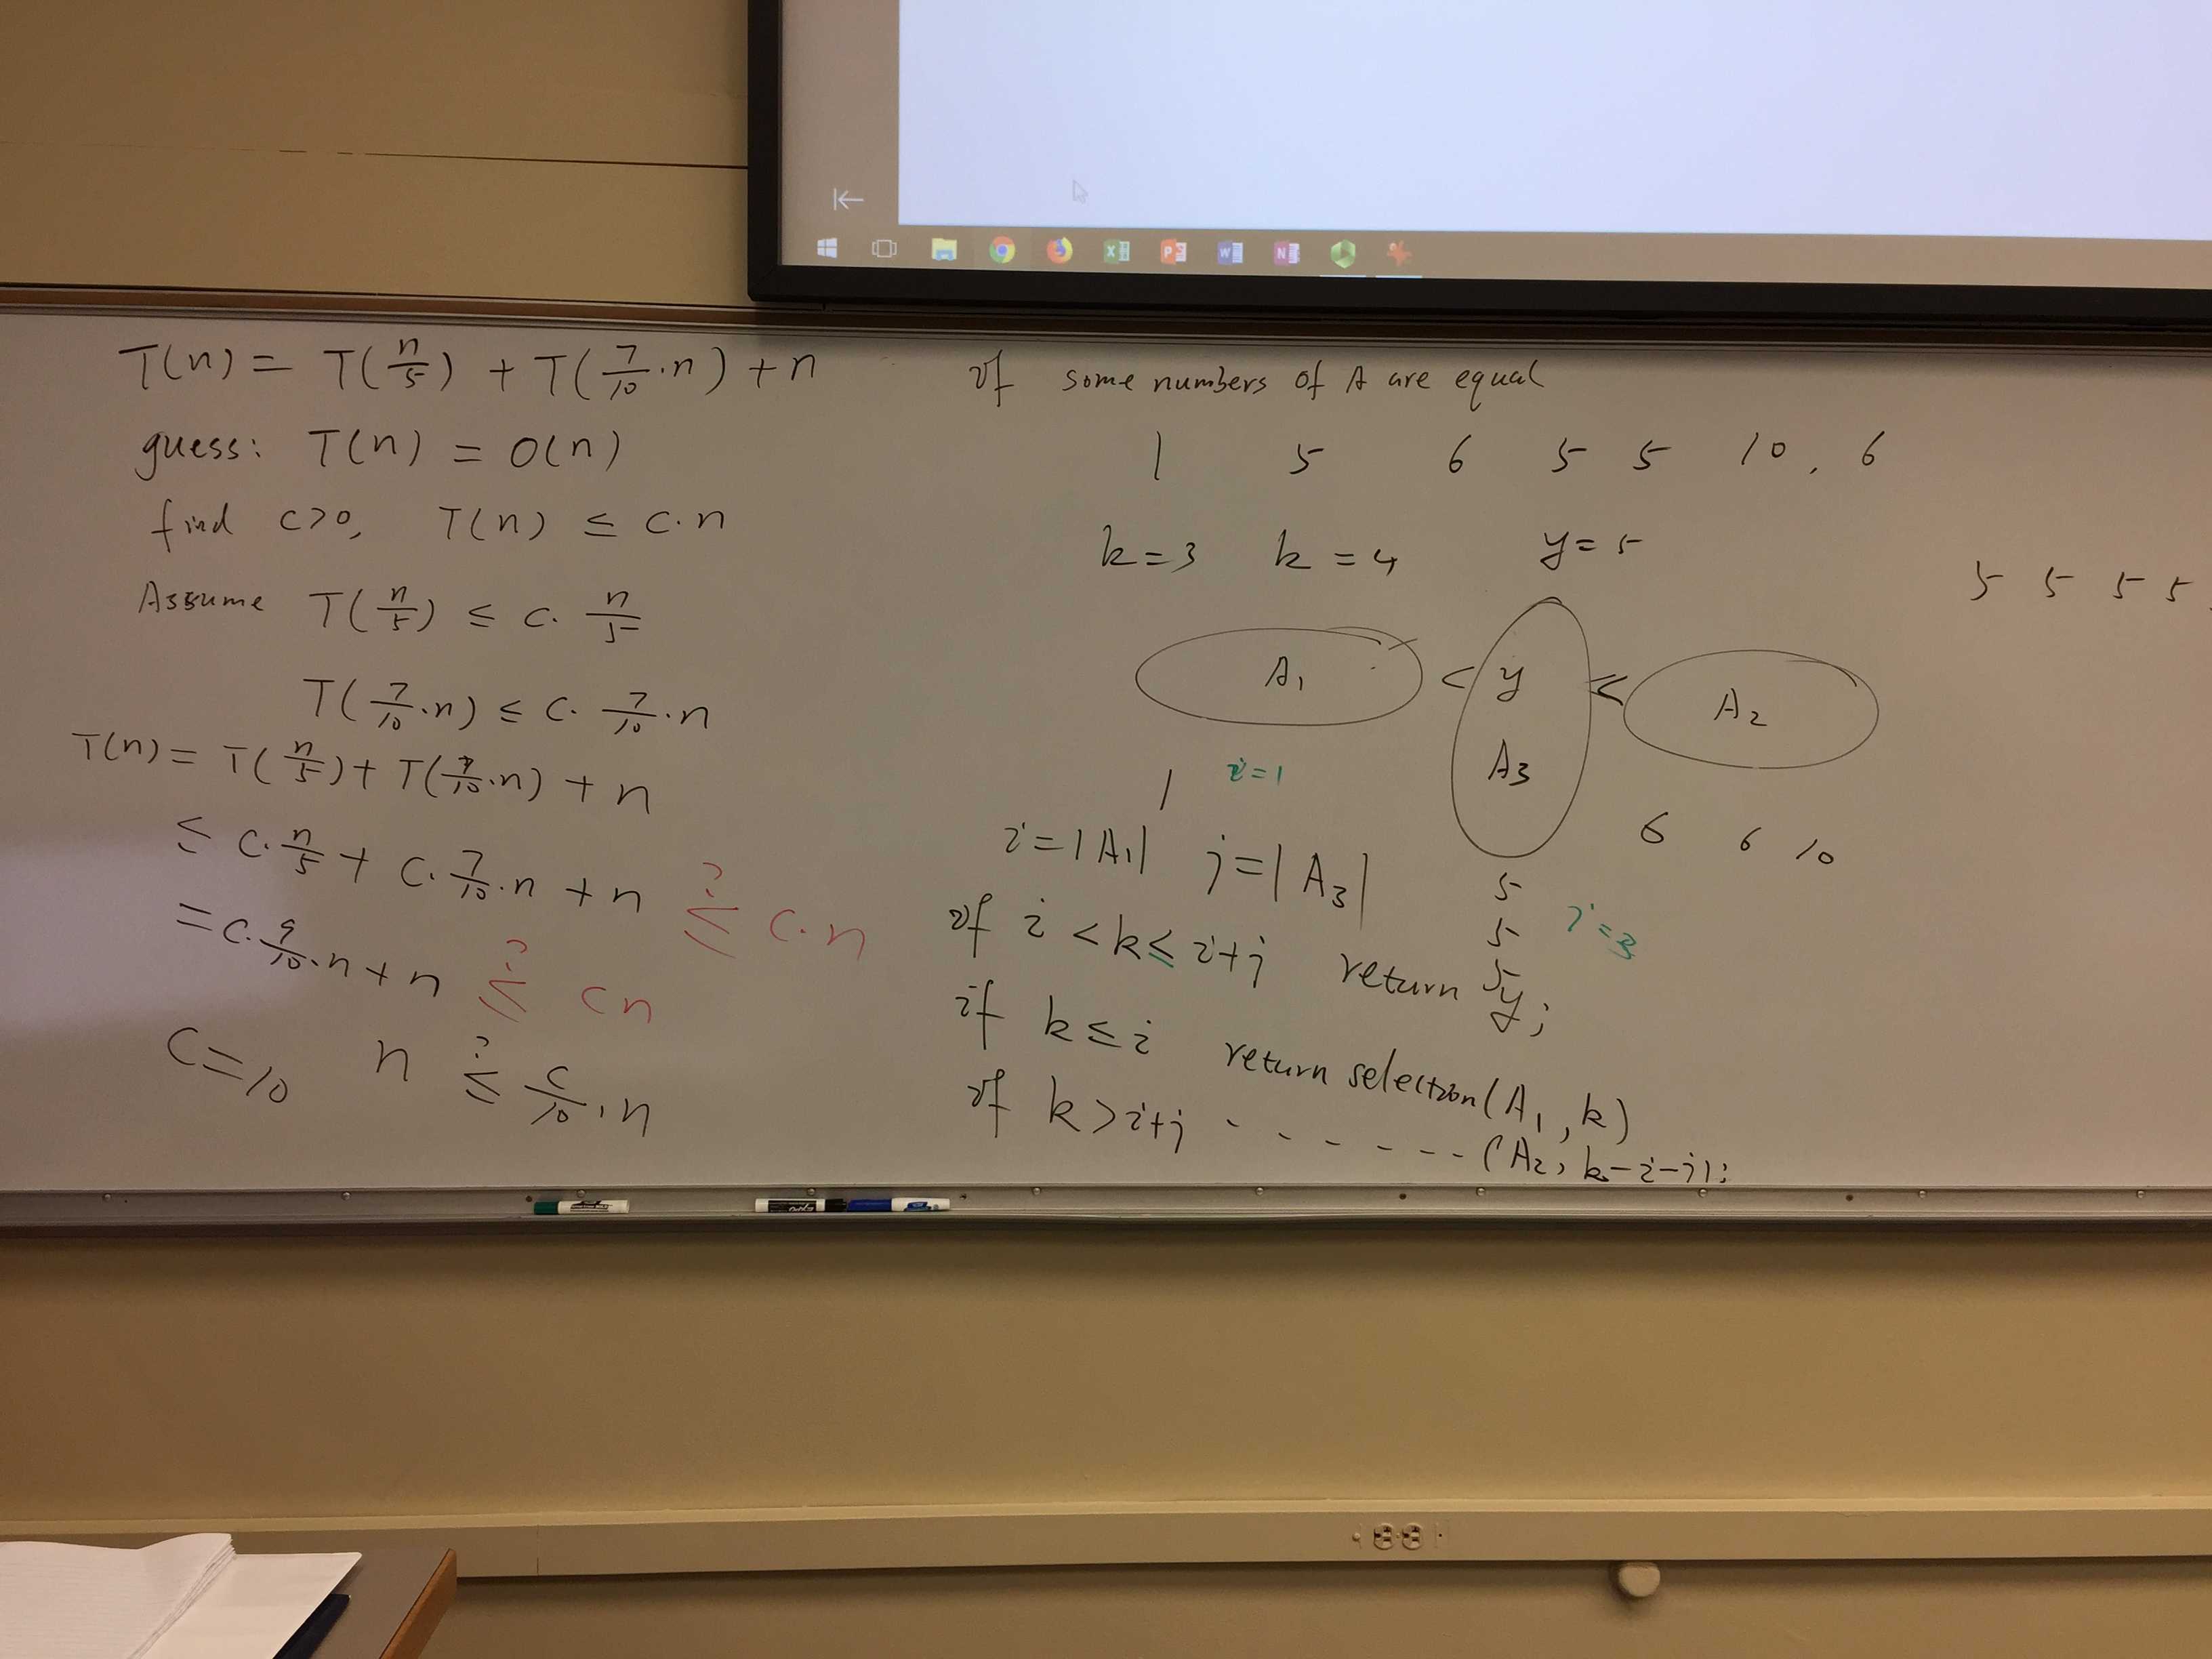 T(n) = T(n/5) + T(7/10·n) + n
guess: T(n) = O(n)
find c>0, T(n) ≤ c·n
Assume T(n/5) ≤ c·n/5
T(7/10·n) ≤ c·7/10·n
T(n) = T(n/5) + T(7/10·n) + n
≤ c·n/5 + c·7/10·n + n ≤? c·n
= c·9/10·n + n ≤? cn
c=10 n ≤? c/10·n
if some numbers of A are equal
1 5 6 5 5 10, 6
k=3 k=4 y=5
5 5 5 5
A1 < y ≤ A2
A3
1 i=1
6 6 10
i=|A1| j=|A3|
5
5 j=3
5
if i<k≤i+j return y;
if k≤i return selection(A1, k)
if k>i+j - - - - - - - (A2, k-i-j);